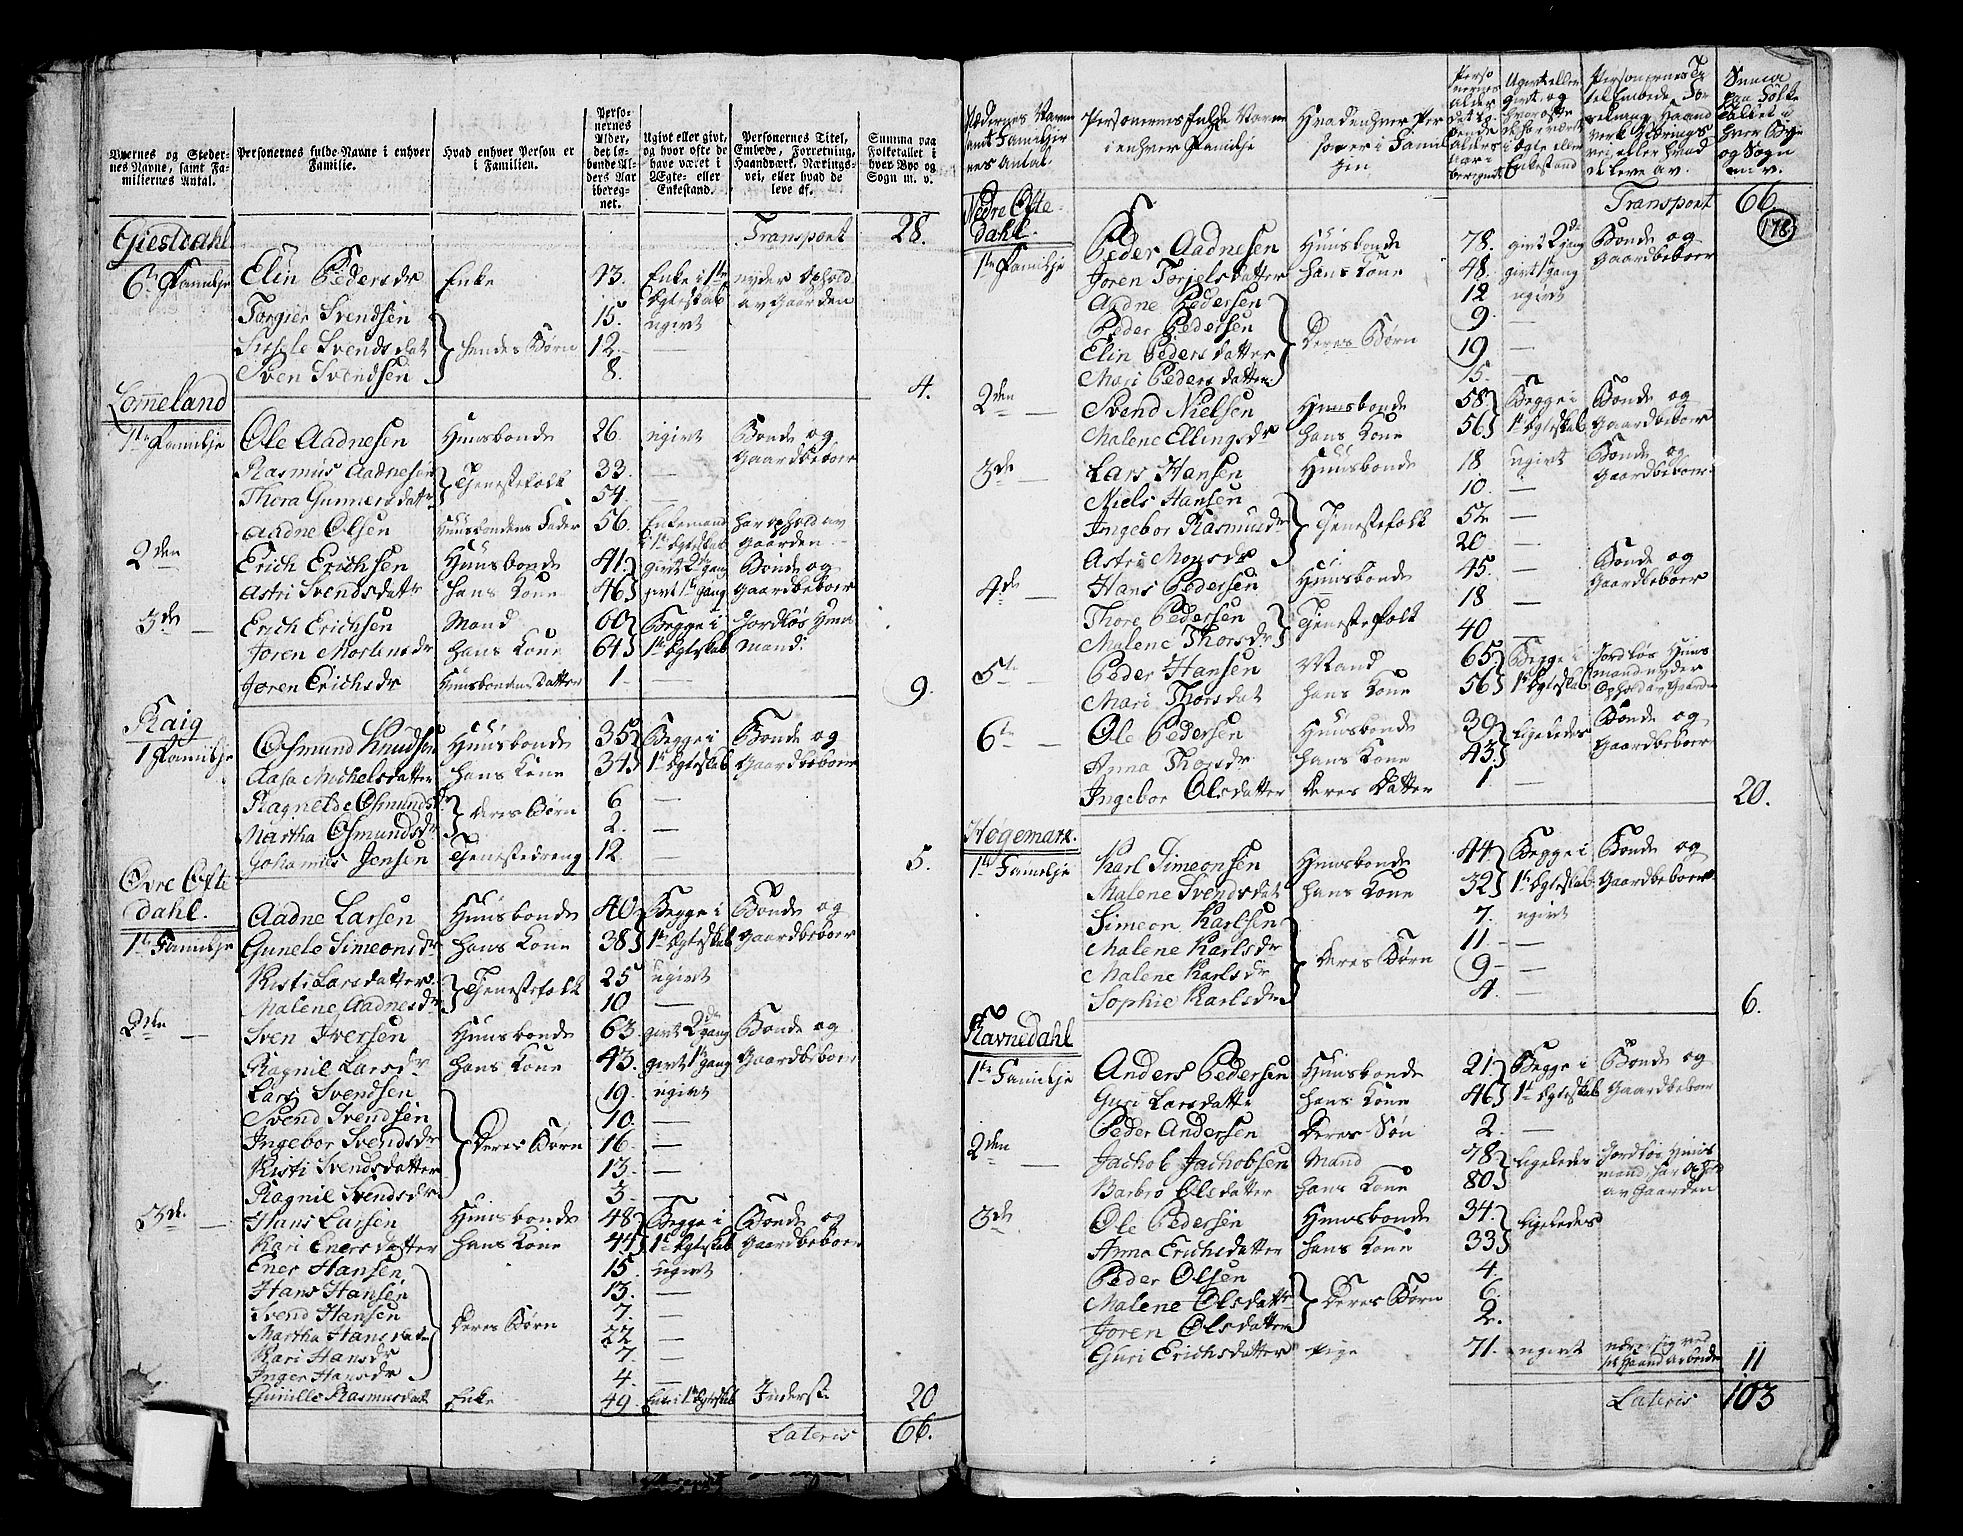 Byernes og Steder-nes Navne, samt Fa-miliernes Antal. | Personernes fulde Navne i enhver Familie. | Hvad enhver Person er i Familien. | Perso-nernes Alder, det lø-bende Al-ders Aar iberegnet. | Ugivt eller givt, og hvor ofte de have været i Ægte- eller Enkestand. | Personernes Titel, Embede, Forretning, Haandværk, Nærings-vei, eller hvad de leve af. | Summa paa Folketallet i hver Bye og Sogn m. v.
Giesdahl Transport 28.
6te Familje Elin Pedersdr Enke 43. Enke i 1te Ægteskab nyder Ophold av Gaarden
Torgier Svendsen 15. ugivt
Sitsele Svendsdat hendes Børn 12 —
Sven Svendsen 8.
4.
Lomeland
1te Familje Ole Aadnesen Huusbonde 26. ugivt Bonde og Gaardbeboer
Rasmus Aadnesen Tjenestefolk 33. —
Thora Gunnersdattr 54. —
Aadne Olsen Huusbondens Fader 56. Enkemand 1te Ægteskab har ophold av Gaarden
2den Erich Erichsen Huusbonde 41. givt 2den gang Bonde og
Astri Svendsdattr hans Kone 46 givt 1te gang Gaardbeboer
3de — Erich Erichsen Mand 60 Begge i Jordløs Huus
Joren Mortensdr hans Kone 64 1te Ægteskab mand.
Joren Erichsdr Huusbondens Datter 1 —
9.
Raig
1 Familje Osmund Knudsen Huusbonde 35 Begge i Bonde og
Aasa Michelsdatter hans Kone 34 1te Ægteskab Gaardbeboer
Ragnelde Osmundsdr deres Børn 6 —
Martha Osmundsdr 2. —
Johannes Jensen Tjenestedreng 12 —
5.
Øvre Oxte
dahl.
Aadne Larsen Huusbonde 40 Begge i Bonde og
1te Familje Gunele Simeonsdr hans Kone 38 1te Ægteskab Gaardbeboer
Kisti Larsdatter Tjenestefolk 25 ugivt
Malene Aadnesdr 10 —
2den — Sven Iversen Huusbonde 63 givt 2de gang Bonde og
Ragnil Larsdr hans Kone 43. givt 1te gang Gaardbeboer
Lars Svendsen 19. ugivt
Svend Svendsen 10. —
Ingebor Svendsdr Deres Børn 16 —
Kisti Svendsdatter 13. —
Ragnil Svendsdr 3. —
3de. — Hans Larsen Huusbonde 48 Begge i Bonde og
Kari Enersdatter hans Kone 44 1te Ægteskab Gaardbeboer
Ener Hansen 15 ugivt
Hans Hansen 13. —
Svend Hansen Deres Børn 7. —
Martha Hansdat 22 —
Kari Hansdr 7. —
Inger Hansdr 4. —
Gunille Rasmusdat Enke 49 Enke i 1te Ægteskab Inderst 20
Lateris 66.
Stædernes Navne samt Familjernes Antal. | Personernes fulde Navne i enhver Familje | Hvad enhver Person er i Familjen | Personernes alder det løbende alders aar iberegnet | Ugivt eller givt, og hvor ofte de har været i Ægte eller Enkestand | Personernes Titel Embede, Forretning, Haandverk Nærings vei eller hvad de leve av. | Summa paa Folketallet i hver Bye og Sogn m. v.
Nedre Oxte-
dahl. Transport 66.
178
Peder Aadnesen Huusbonde 78. givt 2de gang Bonde og
1te Familje Joren Torjelsdatter hans Kone 48. givt 1te gang Gaardbeboer
Aadne Pedersen 12 ugivt
Peder Pedersen Deres Børn 9. —
Elin Pedersdatter 19 —
Mari Pedersdatter 15. —
2den — Svend Nielsen Huusbonde 58. Begge i Bonde og
Malene Ellingsdr hans Kone 56 1te Ægteskab Gaardbeboer
3de — Lars Hansen Huusbonde 18 ugivt Bonde og Gaardbeboer
Niels Hansen 10. —
Ingebor Rasmusdr Tjenestefolk 52 —
Astri Monsdr 20 —
4de — Hans Pedersen Huusbonde 45. — Bonde og Gaardbeboer
Thore Pedersen Tjenestefolk 18 —
Malene Thorsdr 40 —
5te — Peder Hansen Mand 65. Begge i Jordløs Huus
Mari Thorsdat hans Kone 56 1te Ægteskab mand nyder Ophold av Gaarden
6te — Ole Pedersen Huusbonde 39 Ligeledes Bonde og
Anna Thorsdr hans Kone 43. Gaardbeboer
Ingebor Olsdatter deres Datter 1 —
20.
Høgemark.
1te Familje Karl Simeonsen Huusbonde 44 Begge i Bonde og
Malene Svendsdat hans Kone 32 1te Ægteskab Gaardbeboer
Simeon Karlsen 7. ugivt
Malene Karlsdr deres Børn 11 — —
Malene Karlsdr 9 — —
Sophie Karlsdr 4. —
6.
Ravnedahl
1te Familje Anders Pedersen Huusbonde 21 Begge i Bonde og
Guri Larsdatte hans Kone 46 1te Ægteskab Gaardbeboer
Peder Andersen Deres Søn 2. —
2den — Jachob Jachobsen Mand 78 Ligeledes Jordløs Huus
Barbro Olsdatter hans Kone 80 mand, har Ophold av Gaarden
3de Ole Pedersen Huusbonde 34. Ligeledes
Anna Erichsdatter hans Kone 33
Peder Olsen 4.
Malene Olsdattr Deres Børn 6.
Joren Olsdatter 2.
Guri Erichsdatter Pige 71. ugivt nærer sig ved Haandarbeide 11
Lateris 103